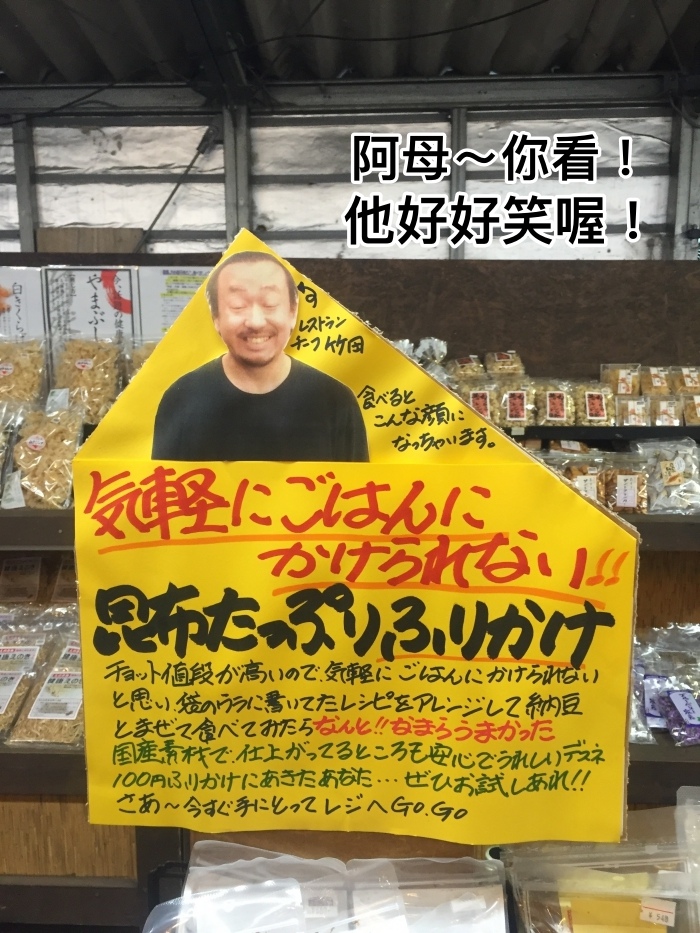 阿母～你看！
他好好笑喔！
レストラン
チーフ竹田
食べると
こんな顔に
なっちゃいます。
気軽にごはんに
かけられない!!
昆布たっぷりふりかけ
チョット値段が高いので、気軽にごはんにかけられない
と思い、袋のウラに書いてたレシピをアレンジして納豆
とまぜて食べてみたらなんと!!なまらうまかった
国産素材で、仕上がってるところも安心でうれしいデスネ
100円ふりかけにあきたあなた…ぜひお試しあれ!!
さあ～今すぐ手にとってレジへGO.GO
やまぶ
白きくらげ